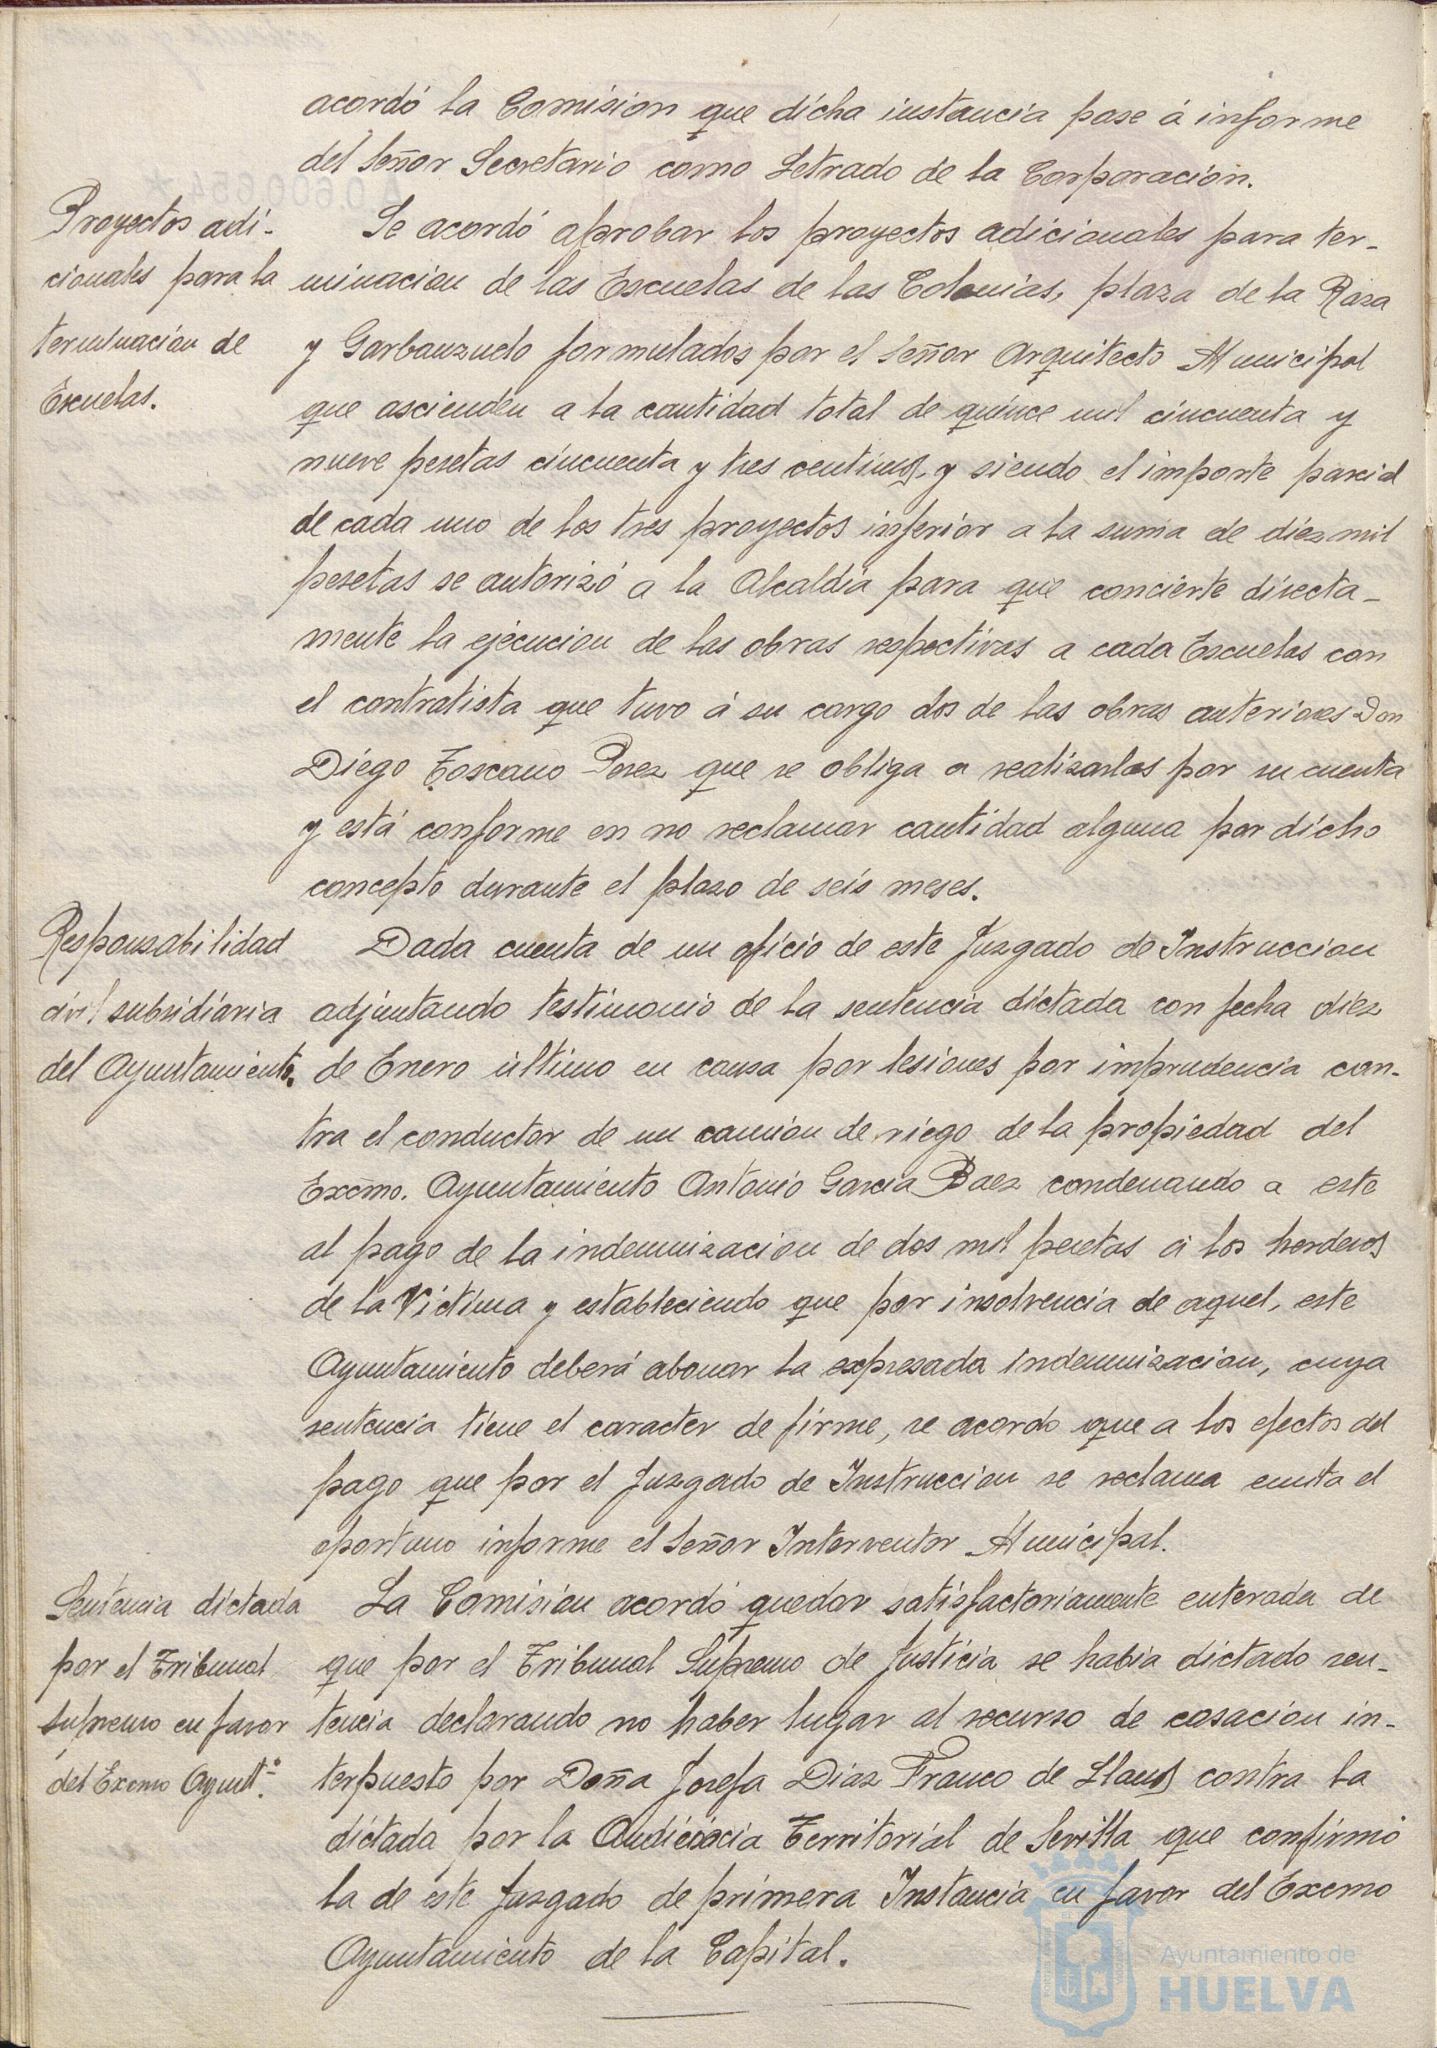 acordó la Comision que dicha instancia pase á informe
del Señor Secretario como Letrado de la Corporacion.
Proyectos adi-
cionales para la
terminación de
Escuelas.
Se acordó aprobar los proyectos adicionales para ter-
minacion de las Escuelas de las Colonias, plaza de la Raza
y Garbanzuelo formulados por el Señor Arquitecto Municipal
que ascienden a la cantidad total de quince mil cincuenta y
nueve pesetas cincuenta y tres centimos, y siendo el importe parcial
de cada uno de los tres proyectos inferior a la suma de diez mil
pesetas se autorizó a la Alcaldia para que concierte directa-
mente la ejecucion de las obras respectivas a cada Escuelas con
el contratista que tuvo á su cargo dos de las obras anteriores Don
Diego Toscano Perez que se obliga a realizarlas por su cuenta
y está conforme en no reclamar cantidad alguna por dicho
concepto durante el plazo de seis meses.
Responsabilidad
civil subsidiaria
del Ayuntamiento.
Dada cuenta de un oficio de este Juzgado de Instruccion
adjuntando testimonio de la sentencia dictada con fecha diez
de Enero último en causa por lesiones por imprudencia con-
tra el conductor de un camion de riego de la propiedad del
Excmo. Ayuntamiento Antonio Garcia Baez condenando a este
al pago de la indemnizacion de dos mil pesetas á los herderos
de la Victima y estableciendo que por insolvencia de aquel, este
Ayuntamiento deberá abonar la expresada indemnizacion, cuya
sentencia tiene el caracter de firme, se acordo que a los efectos del
pago que por el Juzgado de Instruccion se reclama emita el
oportuno informe el Señor Interventor Municipal.
Sentencia dictada
por el Tribunal
supremo en favor
del Excmo Ayuntº.
La Comisión acordó quedar satisfactoriamente enterada de
que por el Tribunal Supremo de Justicia se habia dictado sen-
tencia declarando no haber lugar al recurso de casacion in-
terpuesto por Doña Josefa Diaz Franco de Llanos contra la
dictada por la Audiencia Territorial de Sevilla que confirmó
la de este Juzgado de primera Instancia en favor del Excmo
Ayuntamiento de la Capital.
Ayuntamiento de
HUELVA